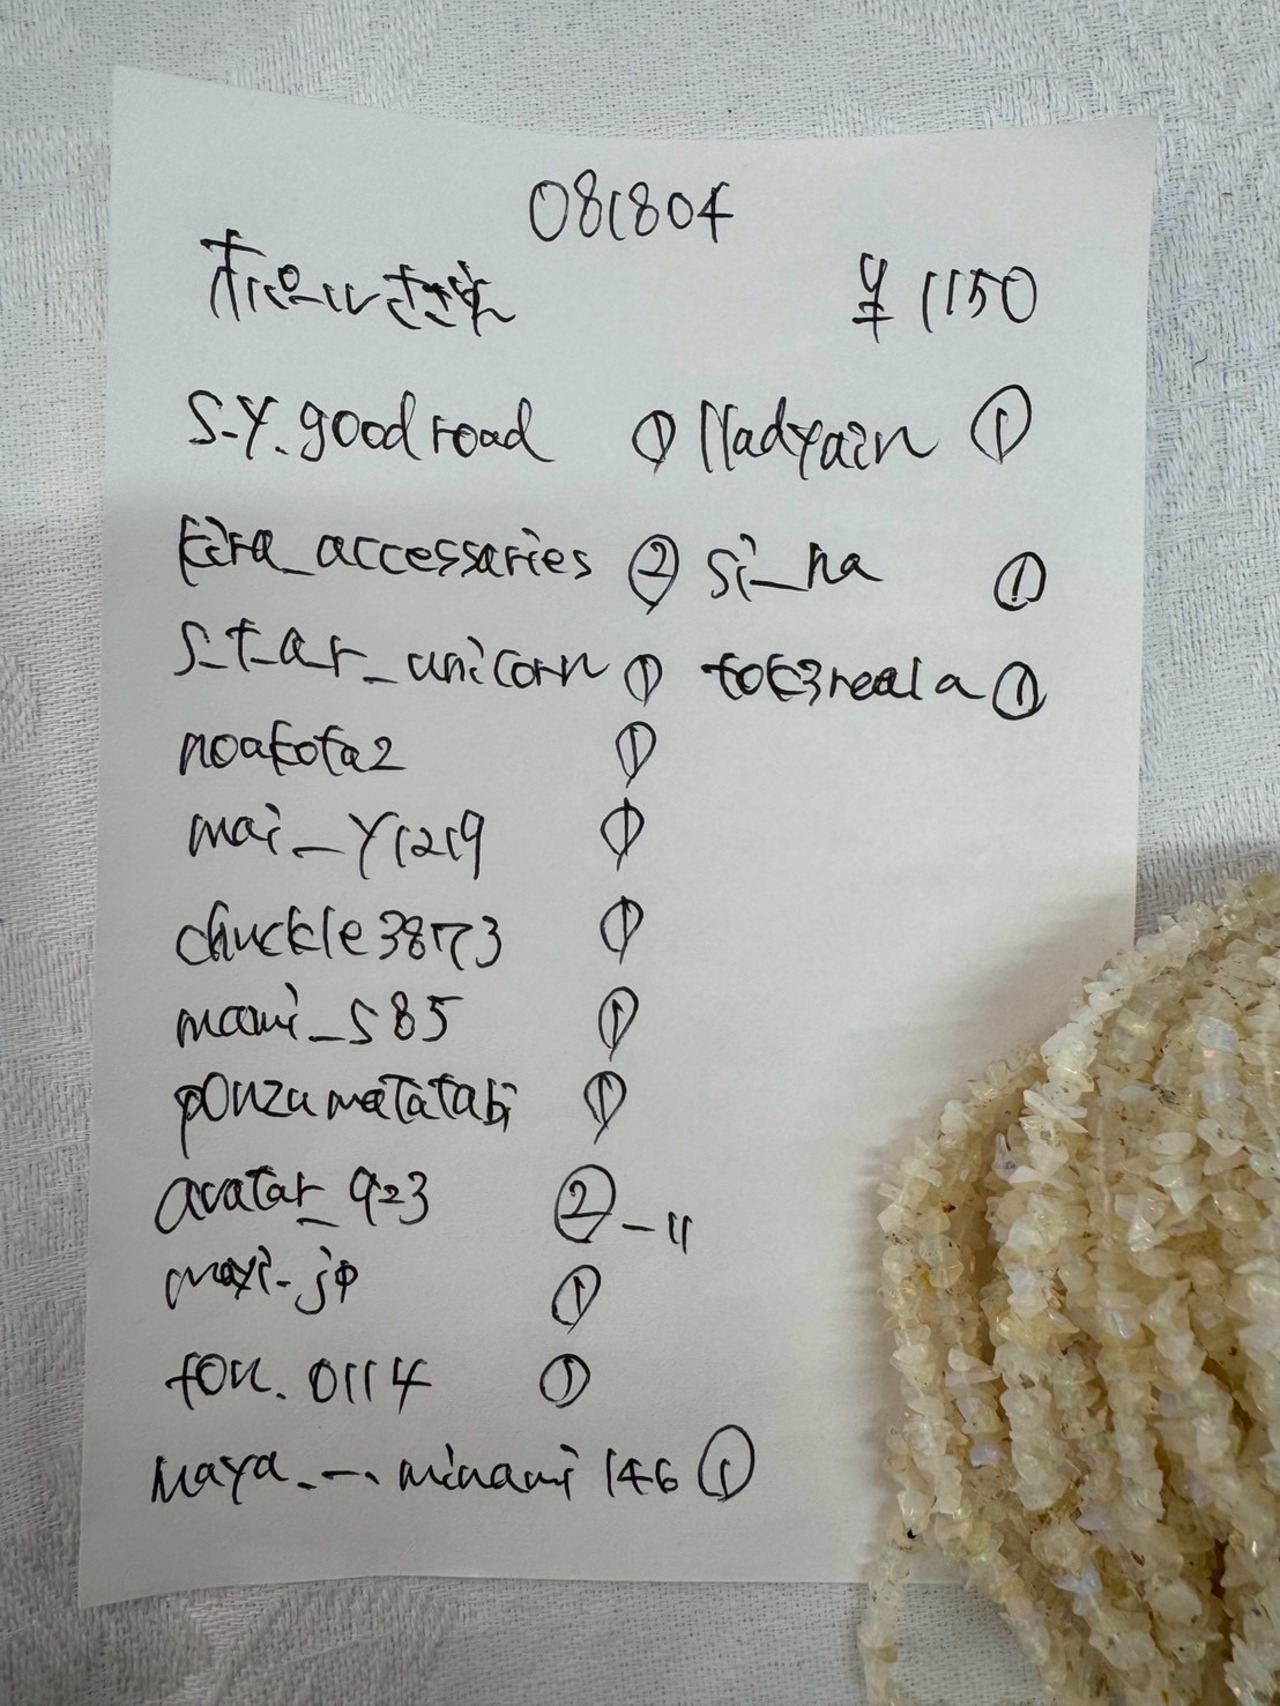 081804
オパールさざれ ¥1150
s.y.goodroad ① lladyain ①
kira_accessaries ② si_na ①
s_t_a_r_unicorn ① tok3reala ①
noakota2 ①
mai_y1219 ①
chuckle3873 ①
mami_s85 ①
ponzumatatabi ①
avatar_923 ②-11
mayi-jp ①
fou.0114 ①
maya.--.minami146 ①